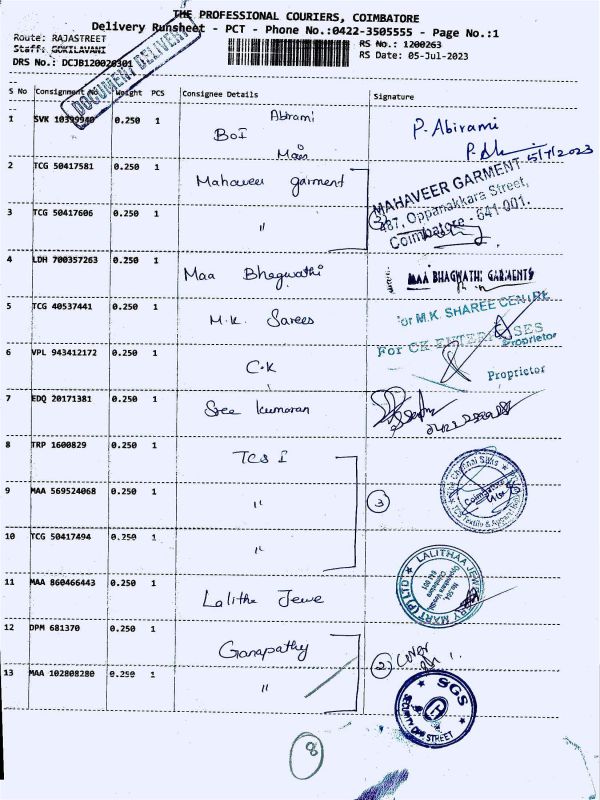 THE PROFESSIONAL COURIERS, COIMBATORE
Delivery Runsheet - PCT - Phone No.:0422-3505555 - Page No.:1
Route: RAJASTREET
Staff: GOKILAVANI
DRS No.: DCJB120020301
RS No.: 1200263
RS Date: 05-Jul-2023
DOCUMENT DELIVERY
S No Consignment No Weight PCS Consignee Details Signature
1 SVK 10399940 0.250 1 BOI Abirami Main P. Abirami
5/7/2023
2 TCG 50417581 0.250 1 Mahaveer garment
MAHAVEER GARMENT
487, Oppanakkara Street,
Coimbatore - 641 001.
3 TCG 50417606 0.250 1 "
2
4 LDH 700357263 0.250 1 Maa Bhagwathi MAA BHAGWATHI GARMENTS
5 TCG 40537441 0.250 1 M.K. Sarees
For M.K. SHAREE CENTRE
Proprietor
6 VPL 943412172 0.250 1 C.K
For CK ENTERPRISES
Proprietor
7 EDQ 20171381 0.250 1 Sree kumaran
8 TRP 1600829 0.250 1 TCS I
9 MAA 569524068 0.250 1 "
3
The Chennai Silks
Coimbatore
10 TCG 50417494 0.250 1 "
11 MAA 860466443 0.250 1 Lalitha Jewe
LALITHAA JEWELLERY MART (P) LTD
12 DPM 681370 0.250 1 Ganapathy
2 Cover
13 MAA 102808280 0.250 1 "
SGS
STREET
8